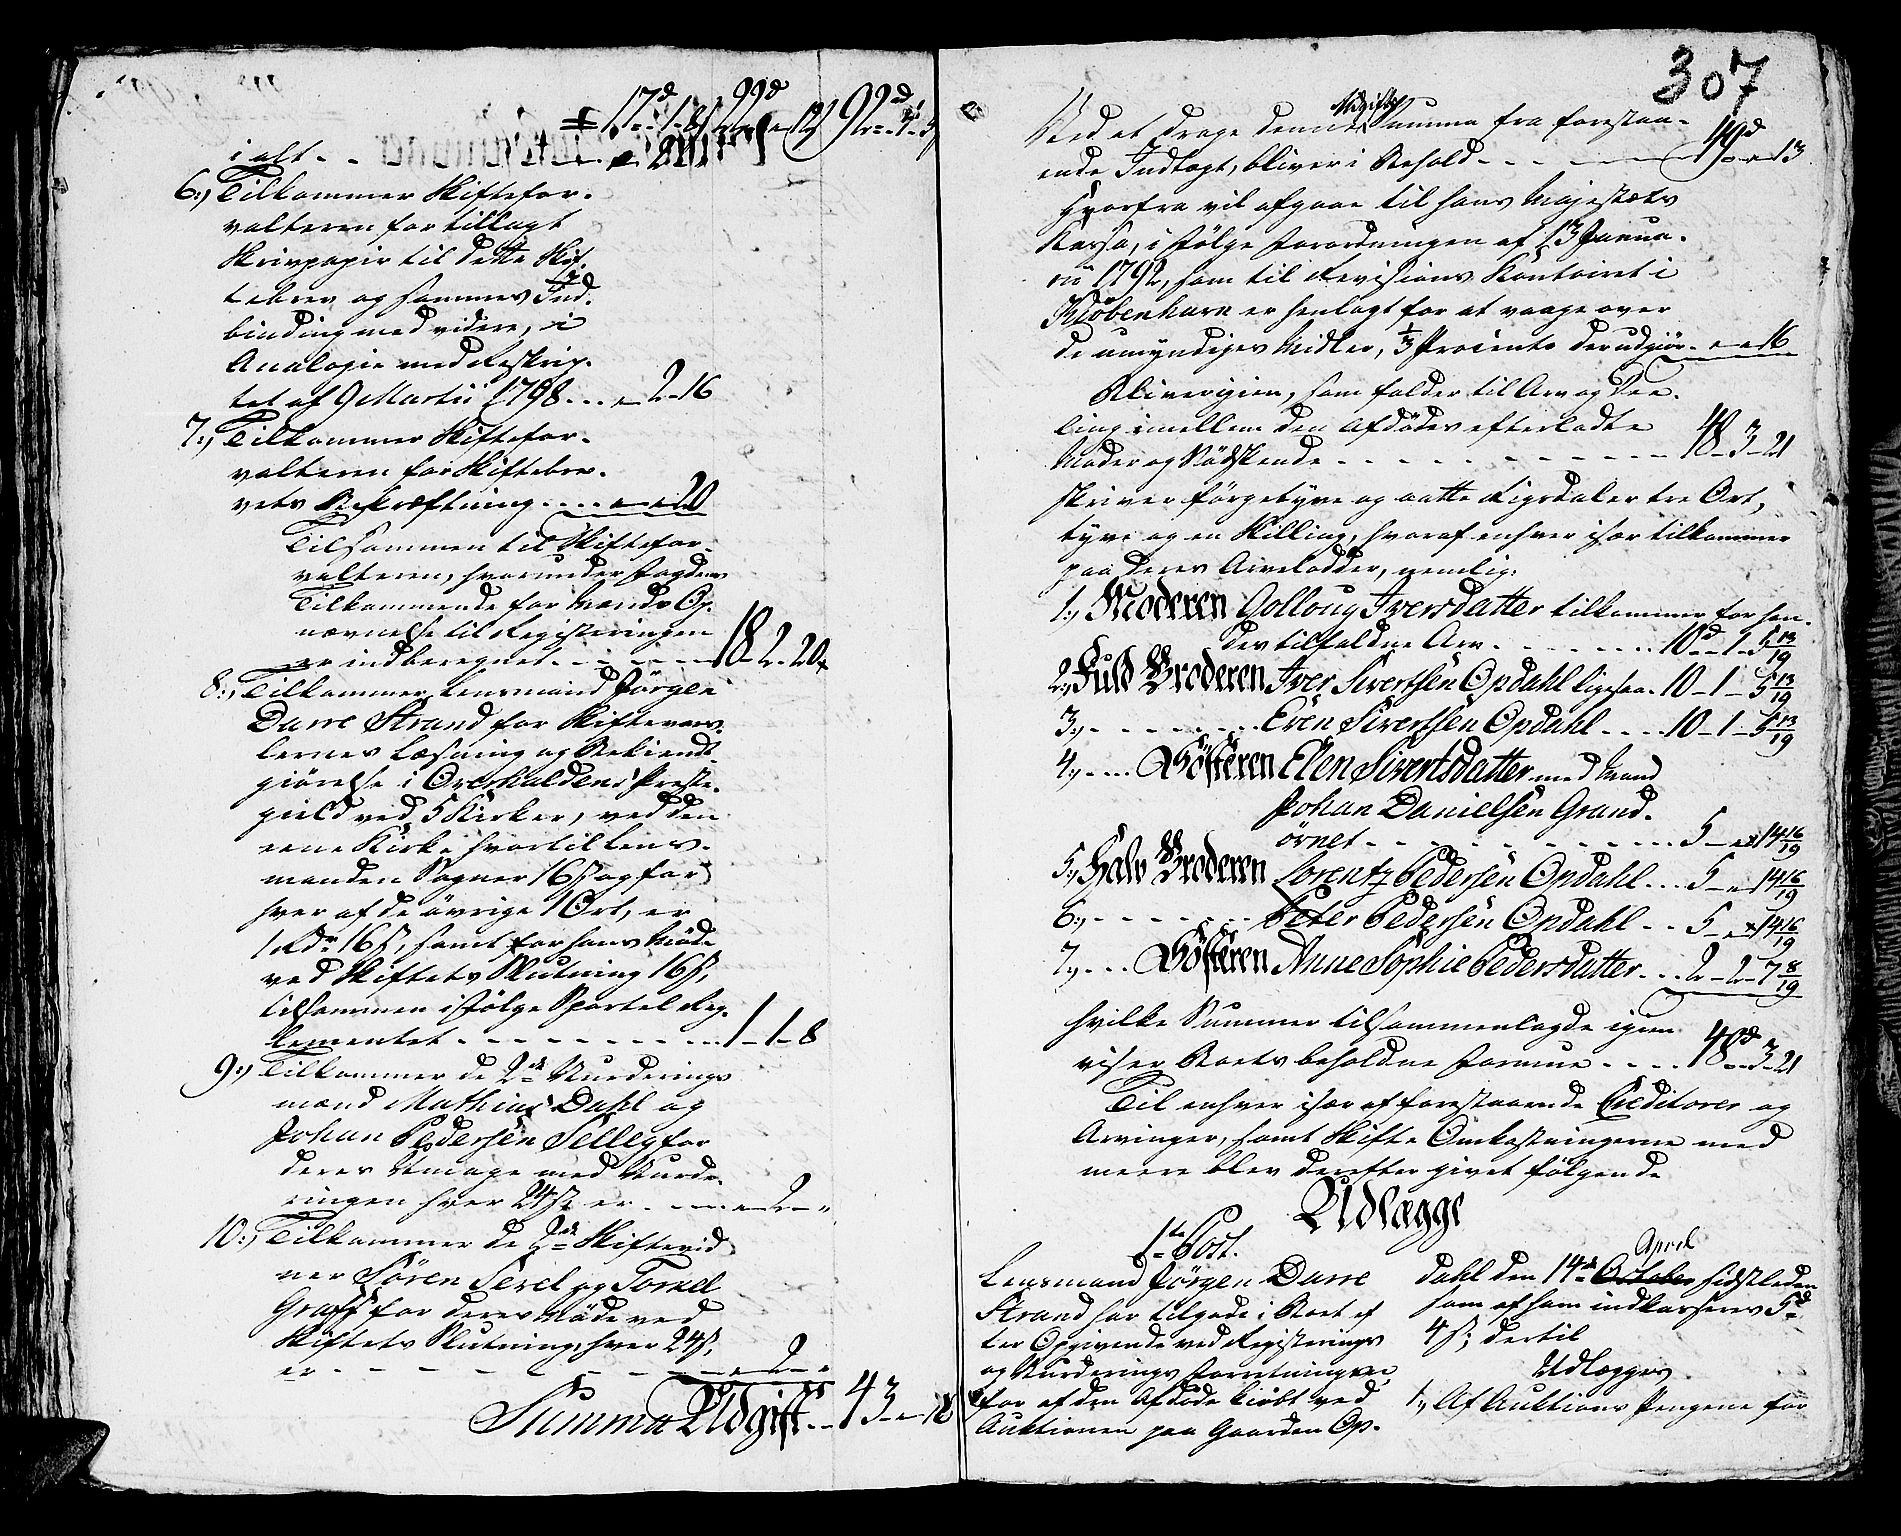 i alt
6.) Tilkommer Skiftefor-
valteren for tillagt
Skrivpapir til dette Skif-
tebrev og sammes Ind-
binding med videre, i
Analogie med Reskrip-
tet af 9 Martii 1798 . . . 2 - 16
7.) Tilkommer Skiftefor-
valteren for Skiftebre-
vets Bekræftning . . . 20
Tilsammen til Skiftefor-
valteren, hvorunder Fogdens
Tilkommende for Mænds Op-
nævnelse til Registeringen
er indberegnet . . . 18 - 2 - 20
8.) Tilkommer Lensmand Jörgen
Darre Strand for Skiftevars-
lernes Læsning og Bekiendt-
giörelse i Overhaldens Præste-
gield ved 5 Kirker, ved den
eene Kirke hvortil Lens-
manden Sogner 16 s og for
hver af de övrige 1 Ort, er
1 Rdr 16 s, samt for hans Möde
ved Skiftets Slutning 16 s,
tilsammen ifölge Sportel Reg-
lementet . . . 1 - 1 - 8
9.) Tilkommer de 2de Vurderings
mænd Mathias Dahl og
Johan Pedersen Selleg for
deres Umage med Vurde-
ringen hver 24 s er . . . 2 - "
10.) Tilkommer de 2de Skiftevid-
ner Sören Serel og Torkel
Graff for deres Möde ved
Skiftets Slutning, hver 24 s,
er - - - 2 -
Summa Udgift . . 43 - " - 18
307
Ved at drage denne Udgifts Summa fra forestaa-
ende Indtægt, bliver i Behold . . . 49 d - " - 13
Hvorfra vil afgaae til hans Majestæts
Kassa, i fölge Forordningen af 13 Janua-
rii 1792, som til Revisions Kontoiret i
Kiöbenhavn er henlagt for at vaage over
de umyndiges Midler, 1/3 Procento der udgiör - " - " 16
Bliver igien, som falder til Arv og Dee-
ling imellem den Afdödes efterladte
Moder og Södskende . . . 48 - 3 - 21
skriver förgetyve og aatte Rigsdaler tre Ort,
tyve og en Skilling, hvoraf enhver især tilkommer
paa deres Arvelodder, nemlig:
1.) Moderen Golloug Iversdatter tilkommer for hen-
des tilfaldne Arv . . . 10 d - 1 - 5 13/19
2.) Fuld Broderen Iver Sivertsen Opdahl ligesaa. 10 - 1 - 5 13/19
3.) - - - Even Sivertsen Opdahl . . . 10 - 1 - 5 13/19
4.) . . . Sösteren Elen Sivertsdatter med Mand
Johan Danielsen Grand-
örnet - - - 5 - " - 14 16/19
5.) Halv Broderen Lorentz Pedersen Opdahl . . . 5 - " - 14 16/19
6.) - - - Peter Pedersen Opdahl . . 5 - " - 14 16/19
7.) . . . Sösteren Anne Sophie Pedersdatter . . . 2 - 2 - 7 8/19
hvilke Summer tilsammenlagde igien
viser Boets beholdne Formue . . . 48 d - 3 - 21
Til enhver især af forestaaende Creditorer og
Arvinger, samt Skifte Omkostningerne med
meere blev derefter givet fölgende
Udlægge
1te Post.
Lensmand Jörgen Darre
Strand har tilgode i Boet ef-
ter Opgivende ved Registerings
og Vurderings Forretningen,
for af den Afdöde kiöbt ved
Auktionen paa Gaarden Op-
April
dahl den 14de October sidstleden
som af ham indkasseres 5 d
4 s, dertil
Udlægges.
1.) Af Auktions Pengene for